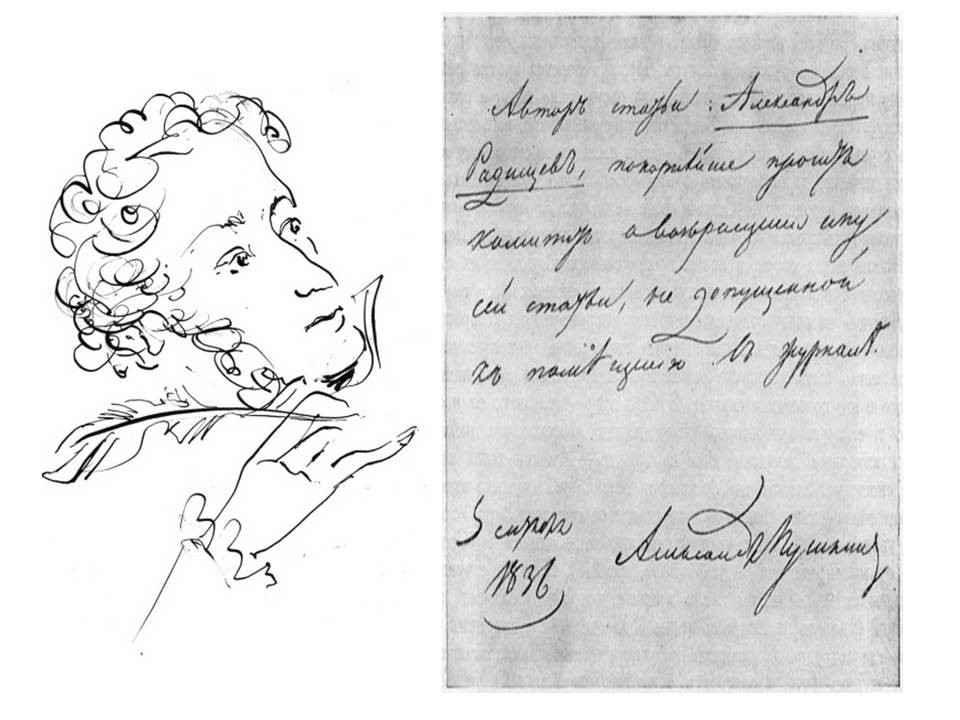 Авторъ статьи: Александръ
Радищевъ, покорнѣйше проситъ
комитетъ о возвращеніи ему
сей статьи, не допущенной
къ помѣщенію въ журналѣ.
1836
Александръ Пушкинъ